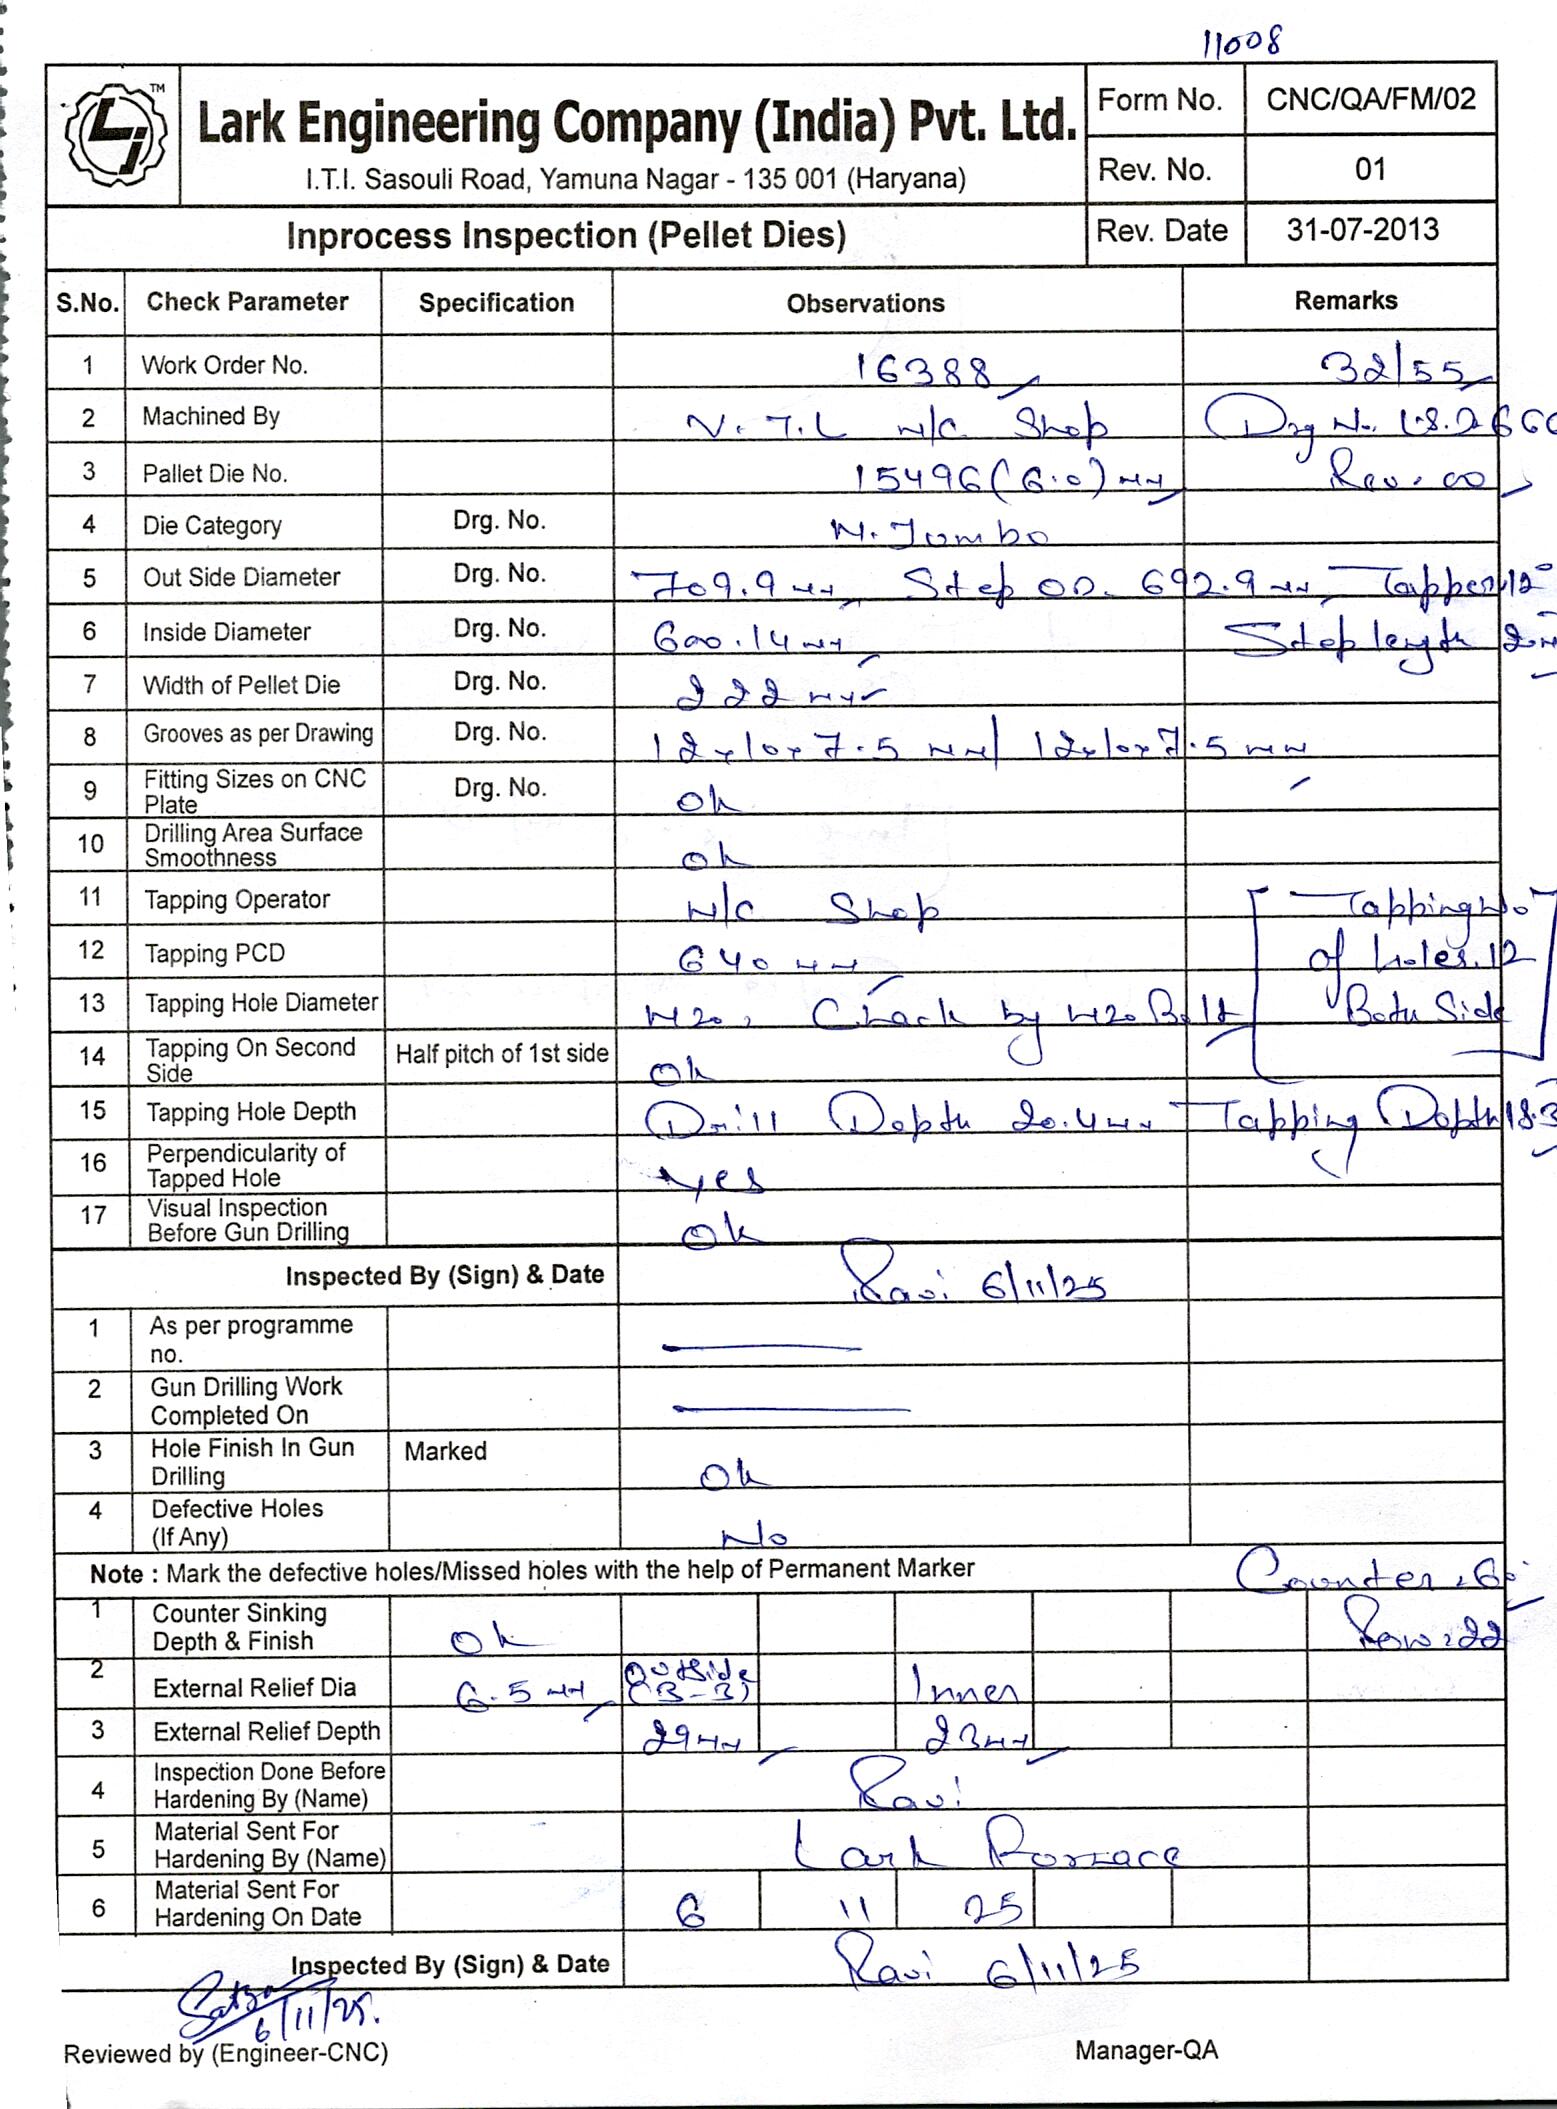 11008
TM
Lark Engineering Company (India) Pvt. Ltd.
I.T.I. Sasouli Road, Yamuna Nagar - 135 001 (Haryana)
Form No. CNC/QA/FM/02
Rev. No. 01
Inprocess Inspection (Pellet Dies)
Rev. Date 31-07-2013
S.No. Check Parameter Specification Observations Remarks
1 Work Order No. 16388 32/55
2 Machined By V.T.L M/C Shop Drg No.
3 Pallet Die No. 15496 (6.0) mm Rev. 00
4 Die Category Drg. No. M. Jumbo
5 Out Side Diameter Drg. No. 709.9 mm Step OD. 692.9 mm Tapper 12°
6 Inside Diameter Drg. No. 600.14 mm Step length
7 Width of Pellet Die Drg. No. 222 mm
8 Grooves as per Drawing Drg. No. 12x10x7.5 mm/ 12x10x7.5 mm
9 Fitting Sizes on CNC
Plate Drg. No. Ok
10 Drilling Area Surface
Smoothness Ok
11 Tapping Operator M/C Shop Tapping No
12 Tapping PCD 640 mm of holes. 12
13 Tapping Hole Diameter M20, Check by M20 Bolt Both Side
14 Tapping On Second
Side Half pitch of 1st side Ok
15 Tapping Hole Depth Drill Depth 20.4 mm Tapping Depth 18.3
16 Perpendicularity of
Tapped Hole yes
17 Visual Inspection
Before Gun Drilling Ok
Inspected By (Sign) & Date Ravi 6/11/25
1 As per programme
no.
2 Gun Drilling Work
Completed On
3 Hole Finish In Gun
Drilling Marked Ok
4 Defective Holes
(If Any) No
Note : Mark the defective holes/Missed holes with the help of Permanent Marker Counter
1 Counter Sinking
Depth & Finish Ok Row: 22
2 External Relief Dia 6.5 mm Outside
(3-3) Inner
3 External Relief Depth 29 mm 23 mm
4 Inspection Done Before
Hardening By (Name) Ravi
5 Material Sent For
Hardening By (Name) Lark
6 Material Sent For
Hardening On Date 6 11 25
Inspected By (Sign) & Date Ravi 6/11/25
6/11/25.
Reviewed by (Engineer-CNC) Manager-QA